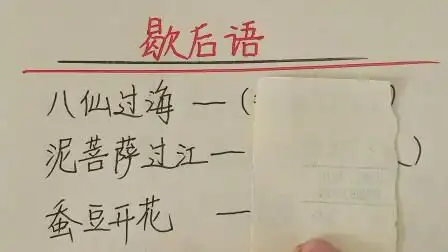 歇后语
八仙过海 — (
泥菩萨过江 — )
蚕豆开花 —